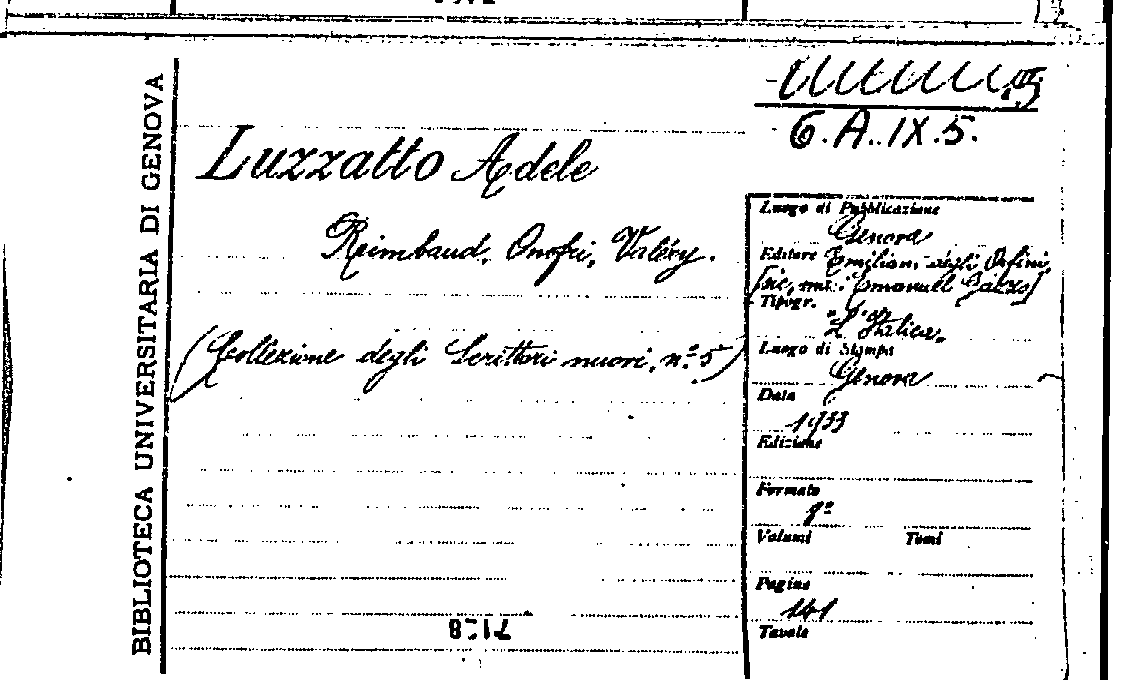 BIBLIOTECA UNIVERSITARIA DI GENOVA
6.A.IX.5.
Luzzatto Adele
Rimbaud, Onofri, Valéry.
(Collezione degli Scrittori nuovi, n.º 5)
Luogo di Pubblicazione
Genova
Editore Emiliano degli Orfini
[sic, ma: Emanuele Gazzo]
Tipogr.
"L'Italica"
Luogo di Stampa
Genova
Data
1933
Edizione
Formato
8º
Volumi Tomi
Pagine
141
Tavole